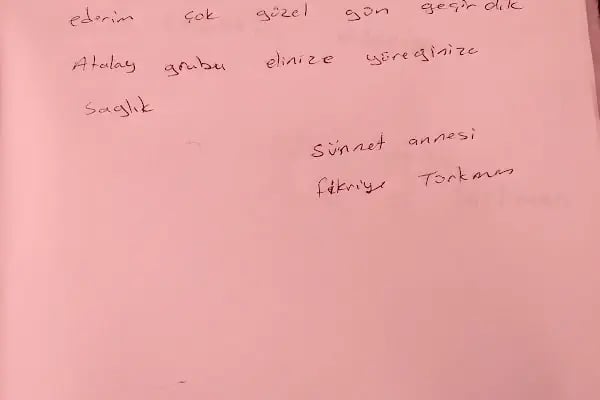 ederim çok güzel gün geçirdik
Atalay grubu elinize yüreğinize
Sağlık
Sünnet annesi
Fikriye Türkmen